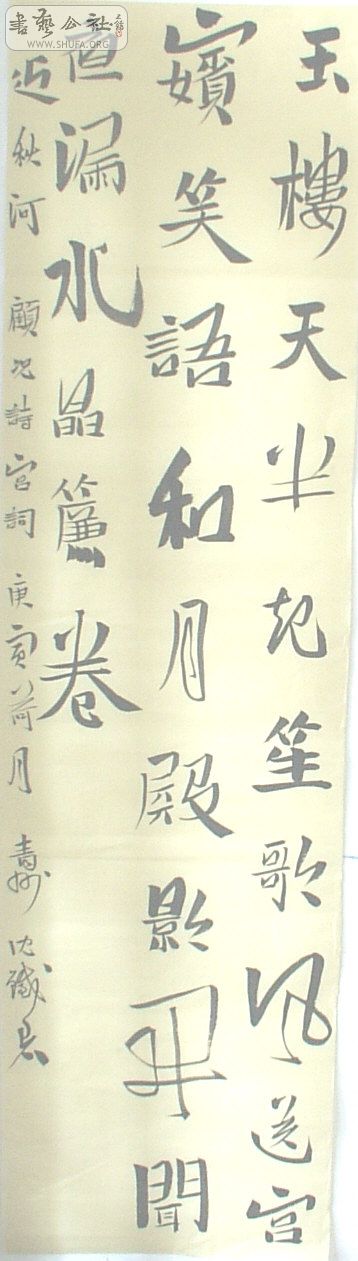 書藝公社
WWW.SHUFA.ORG
玉樓天半起笙歌風送宫
嬪笑語和月殿影開聞
夜漏水晶簾卷
近秋河 顧况詩宫詞 庚寅荷月